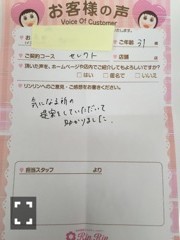 お客様の声
Voice Of Customer
お
ご年齢 31 歳
ご契約コース セレクト
店舗
頂いた声を、ホームページや店内でご紹介してもよろしいですか？
はい 匿名で いいえ
リンリンへのご意見・ご感想をお書きください。
気になる所の
提案をしていただいて
助かりました。
担当スタッフ より
Rin Rin